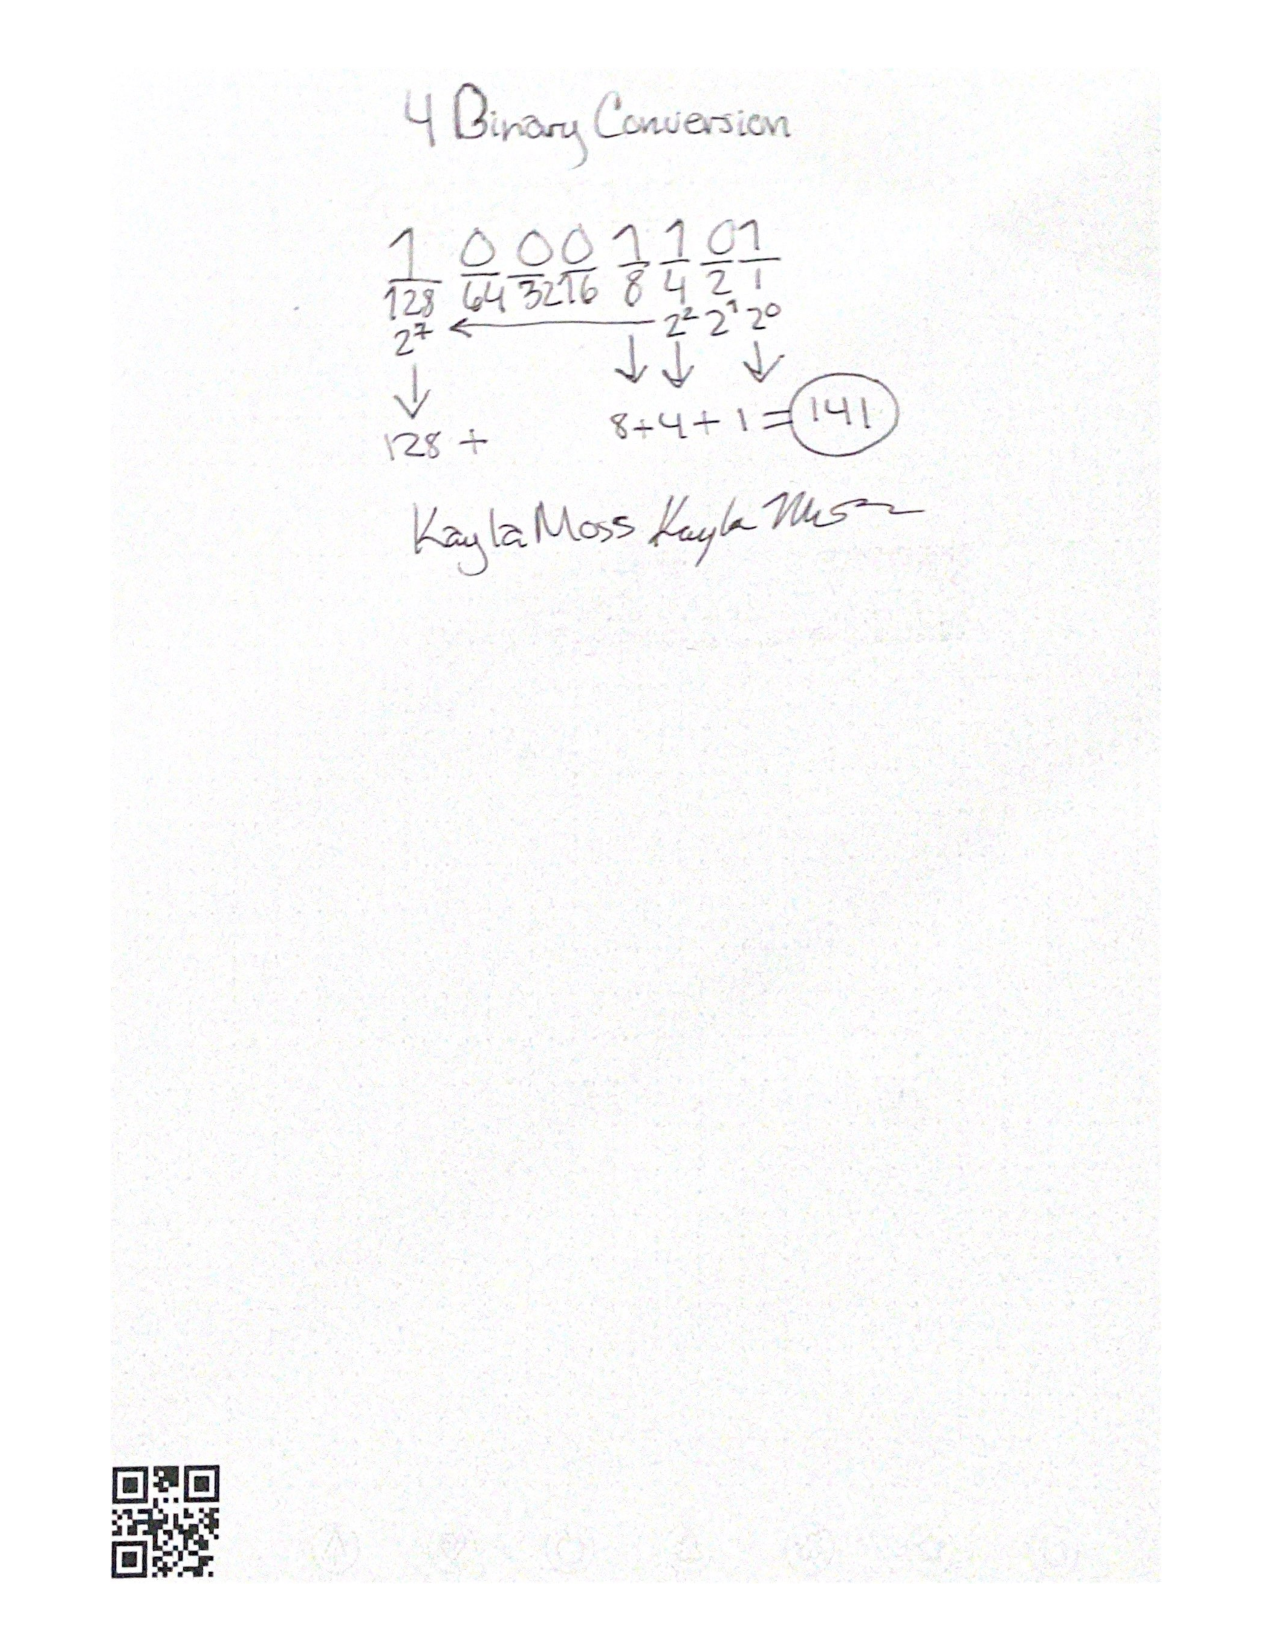 4 Binary Conversion
1 0 0 0 1 1 0 1
128 64 32 16 8 4 2 1
2⁷ ← 2² 2¹ 2⁰
↓ ↓ ↓ ↓
128 + 8 + 4 + 1 = 141
Kayla Moss Kayla Moss